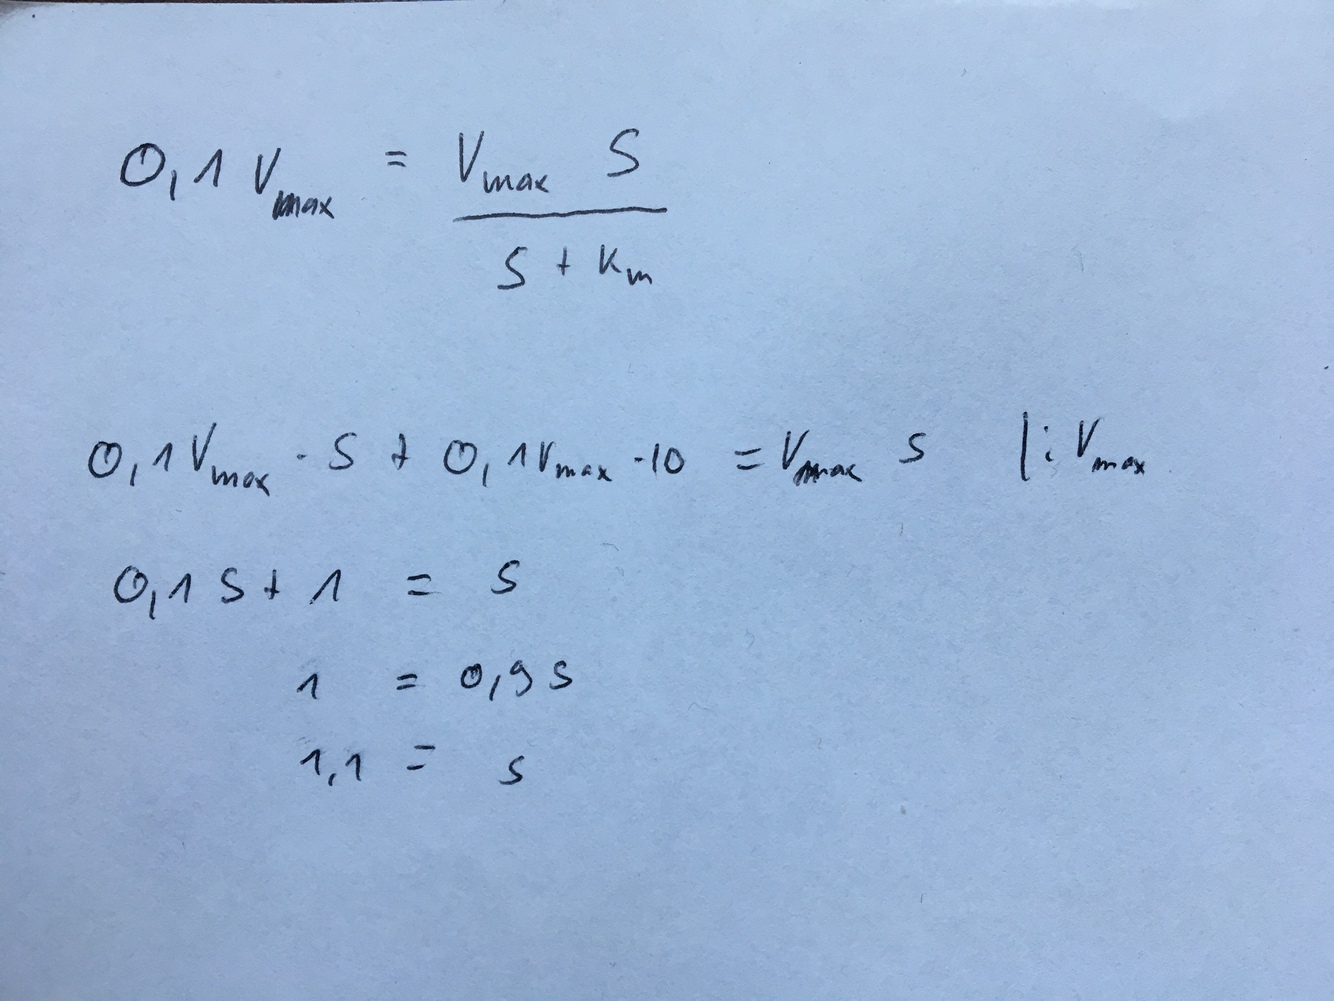 0,1 Vmax = Vmax S
S + Km
0,1 Vmax · S + 0,1 Vmax · 10 = Vmax S |: Vmax
0,1 S + 1 = S
1 = 0,9 S
1,1 = S